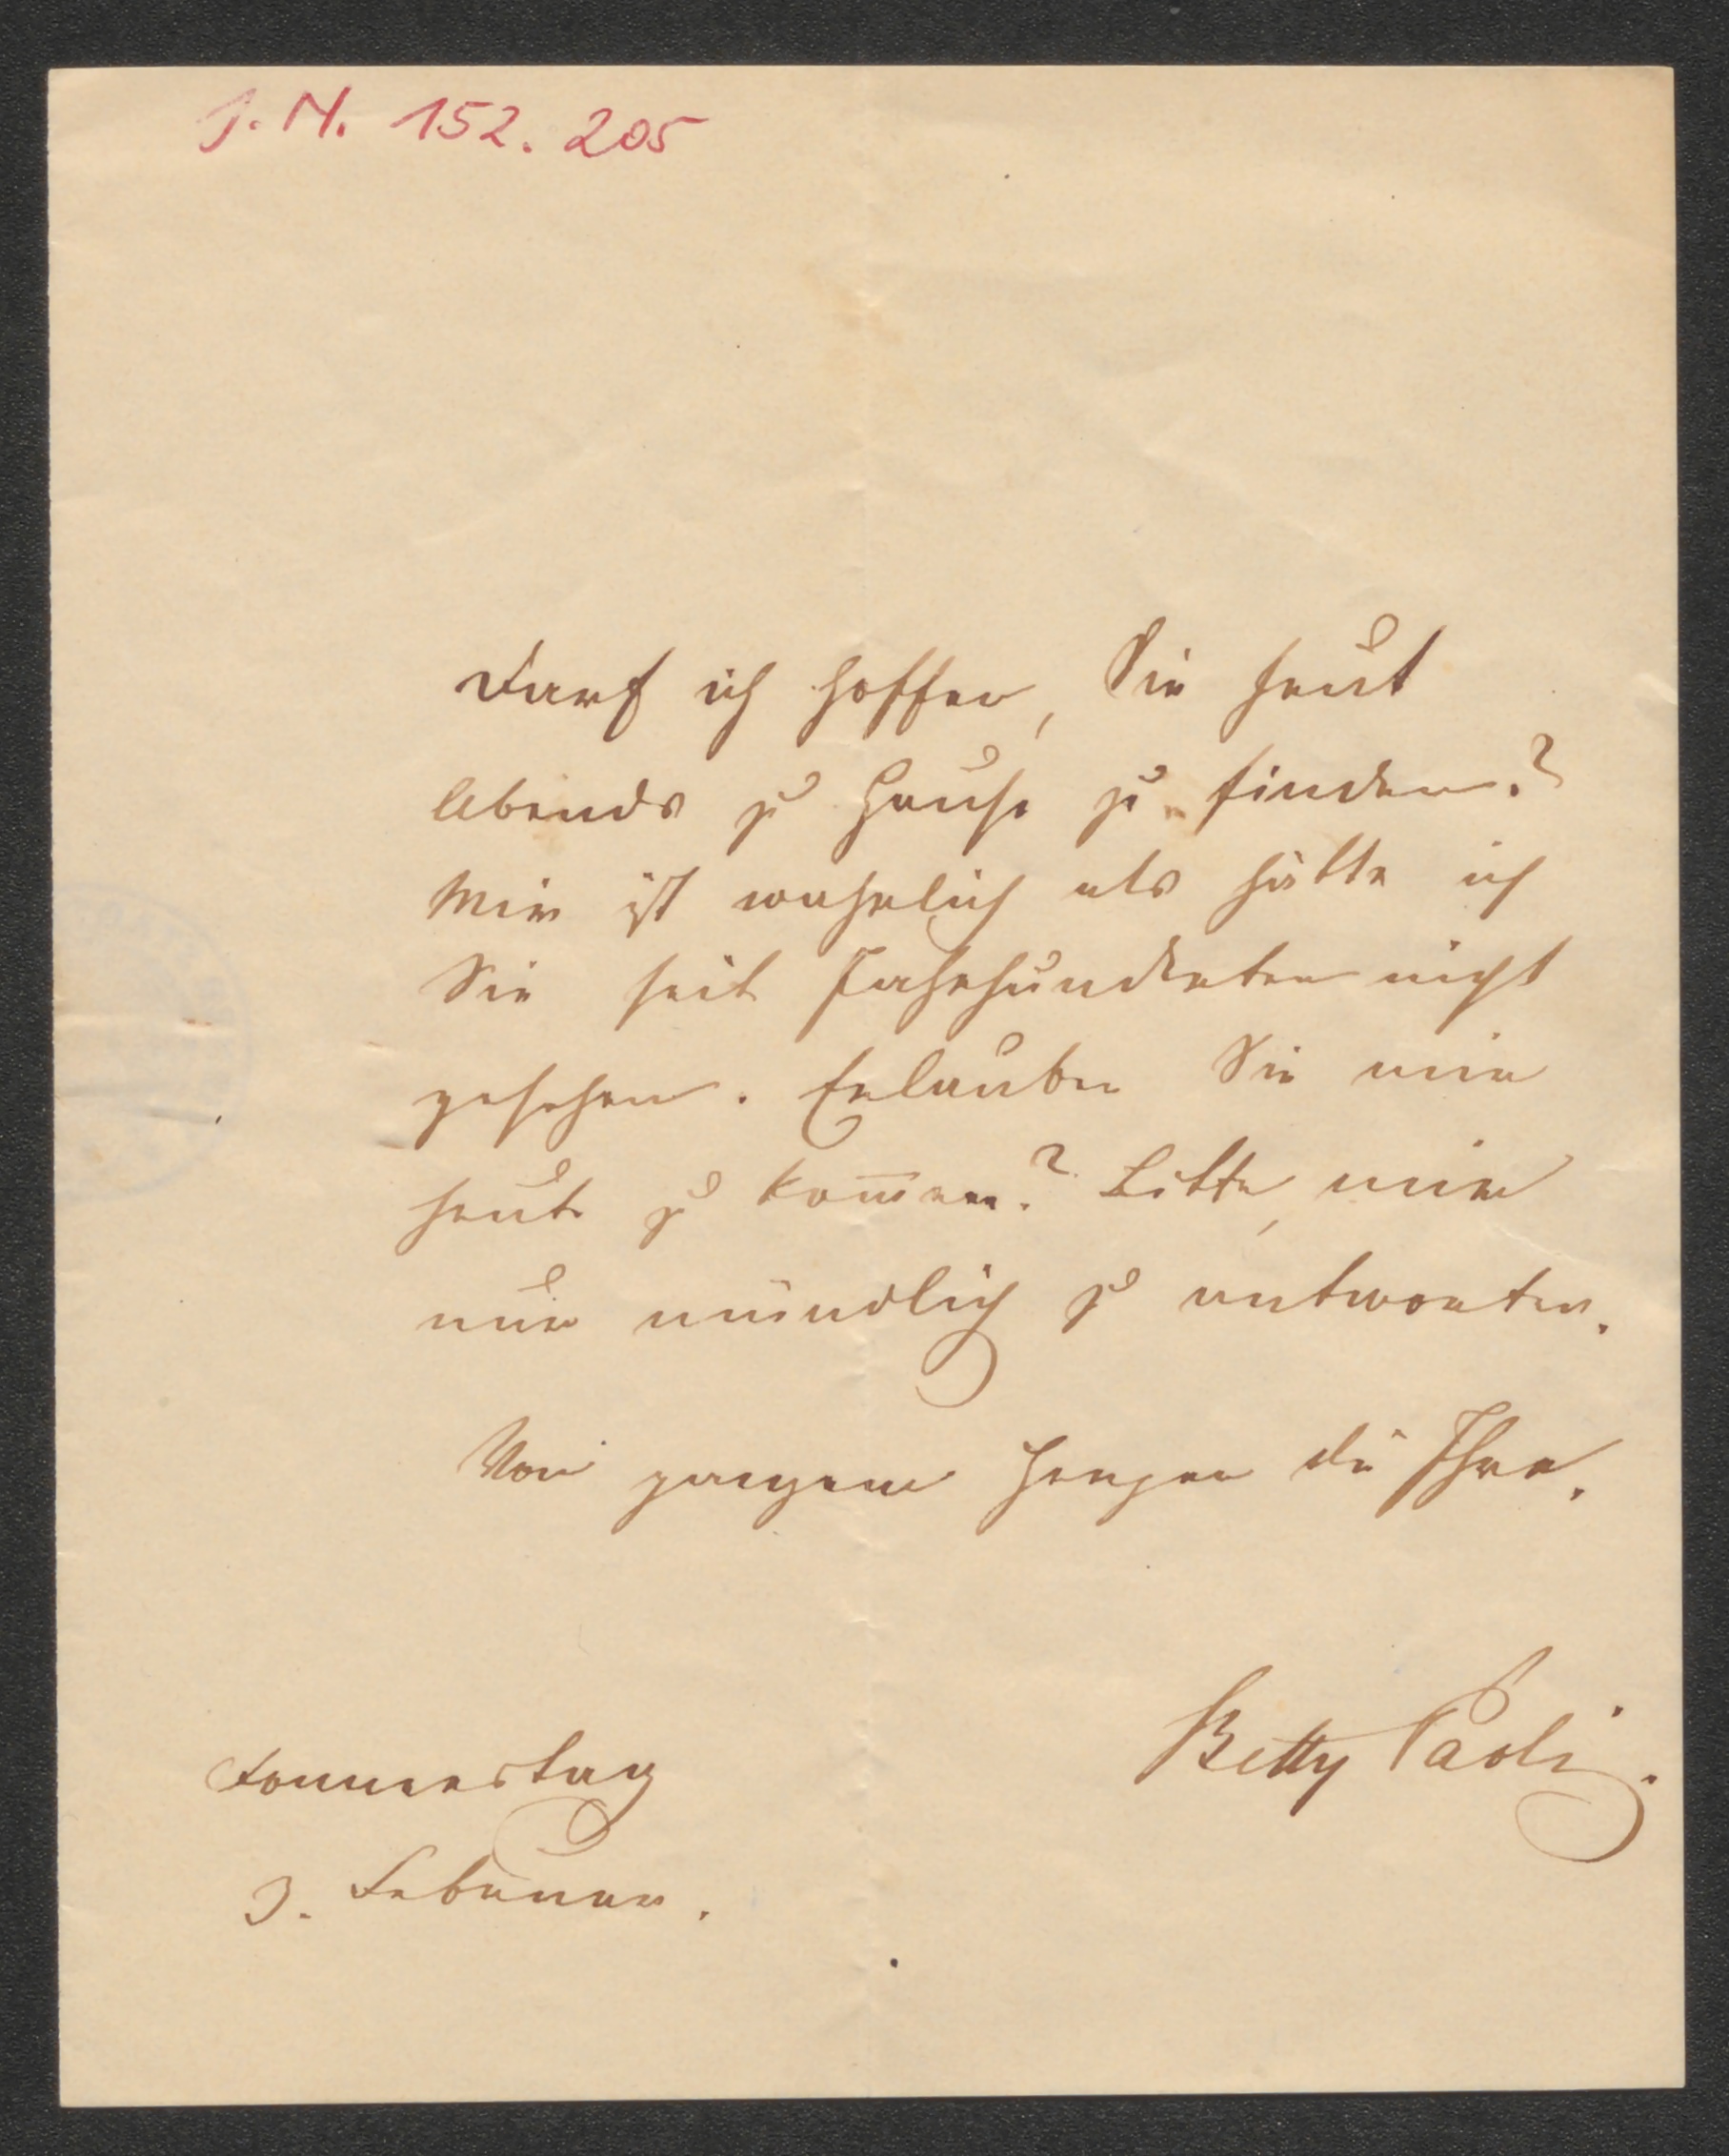 J. N. 152.205
Darf ich hoffen, Sie heut
Abends zu Hause zu finden?
Mir ist wahrlich als hätte ich
Sie seit Jahrhunderten nicht
gesehen. Erlauben Sie mir
heut zu kom̅en? Bitte, mir
nur mündlich zu antworten.
Von ganzem Herzen die Ihre.
Betty Paoli.
Donnerstag
3. Februar.